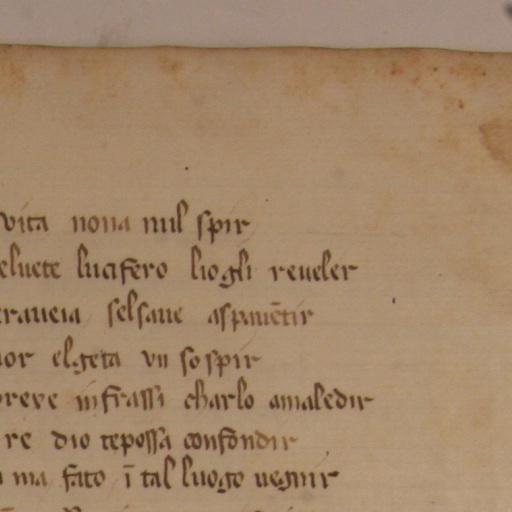 vita noua mil spir
eluete lucifero liogli reueler
eraueia selsaue aspauētir
or elgeta vn sospir
breve infrassi charlo amaledir
re dio tepossa confōndir
ma fato ī tal luogo uegnir